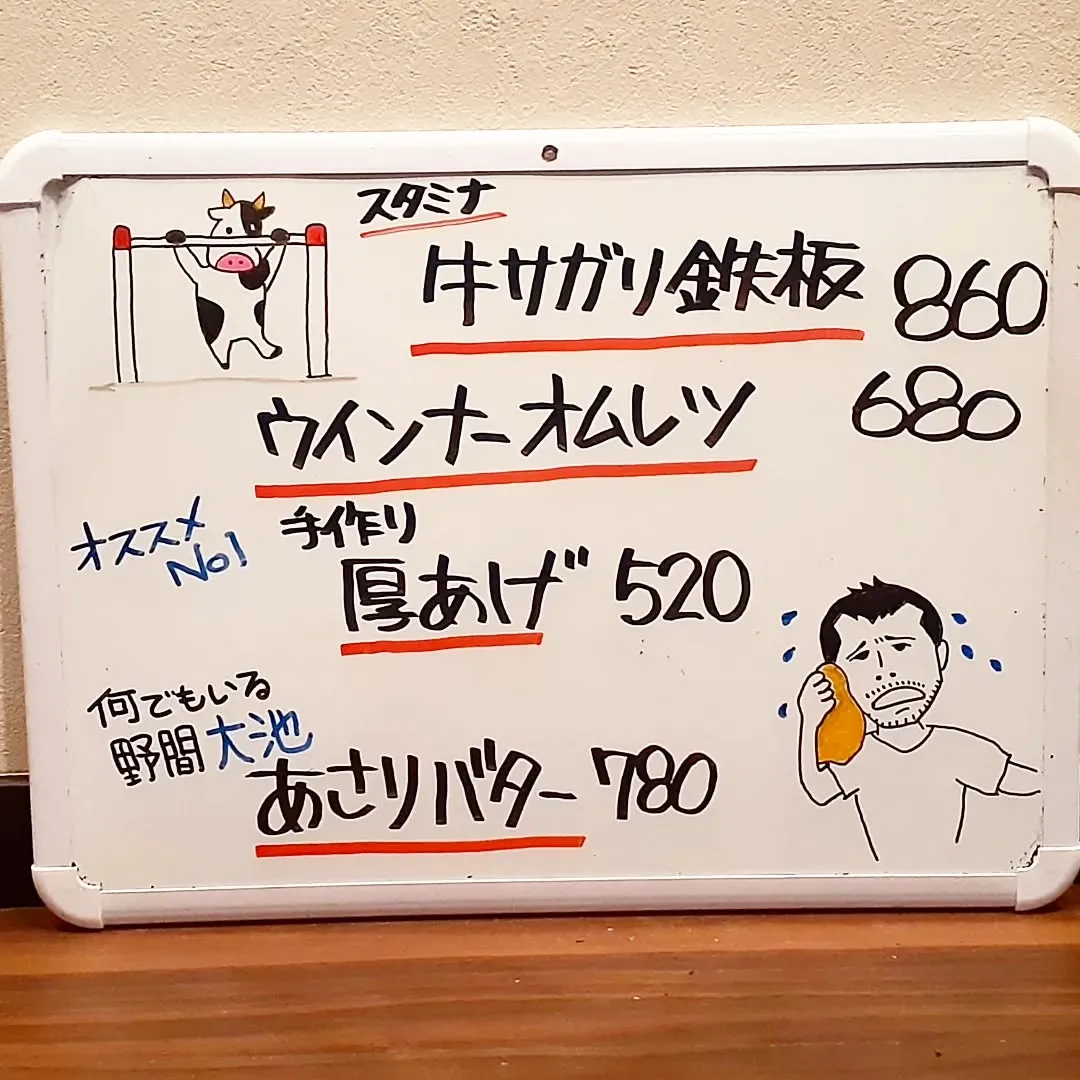 スタミナ
牛サガリ鉄板 860
ウインナーオムレツ 680
オススメ
No1
手作り
厚あげ 520
何でもいる
野間大池
あさりバター 780